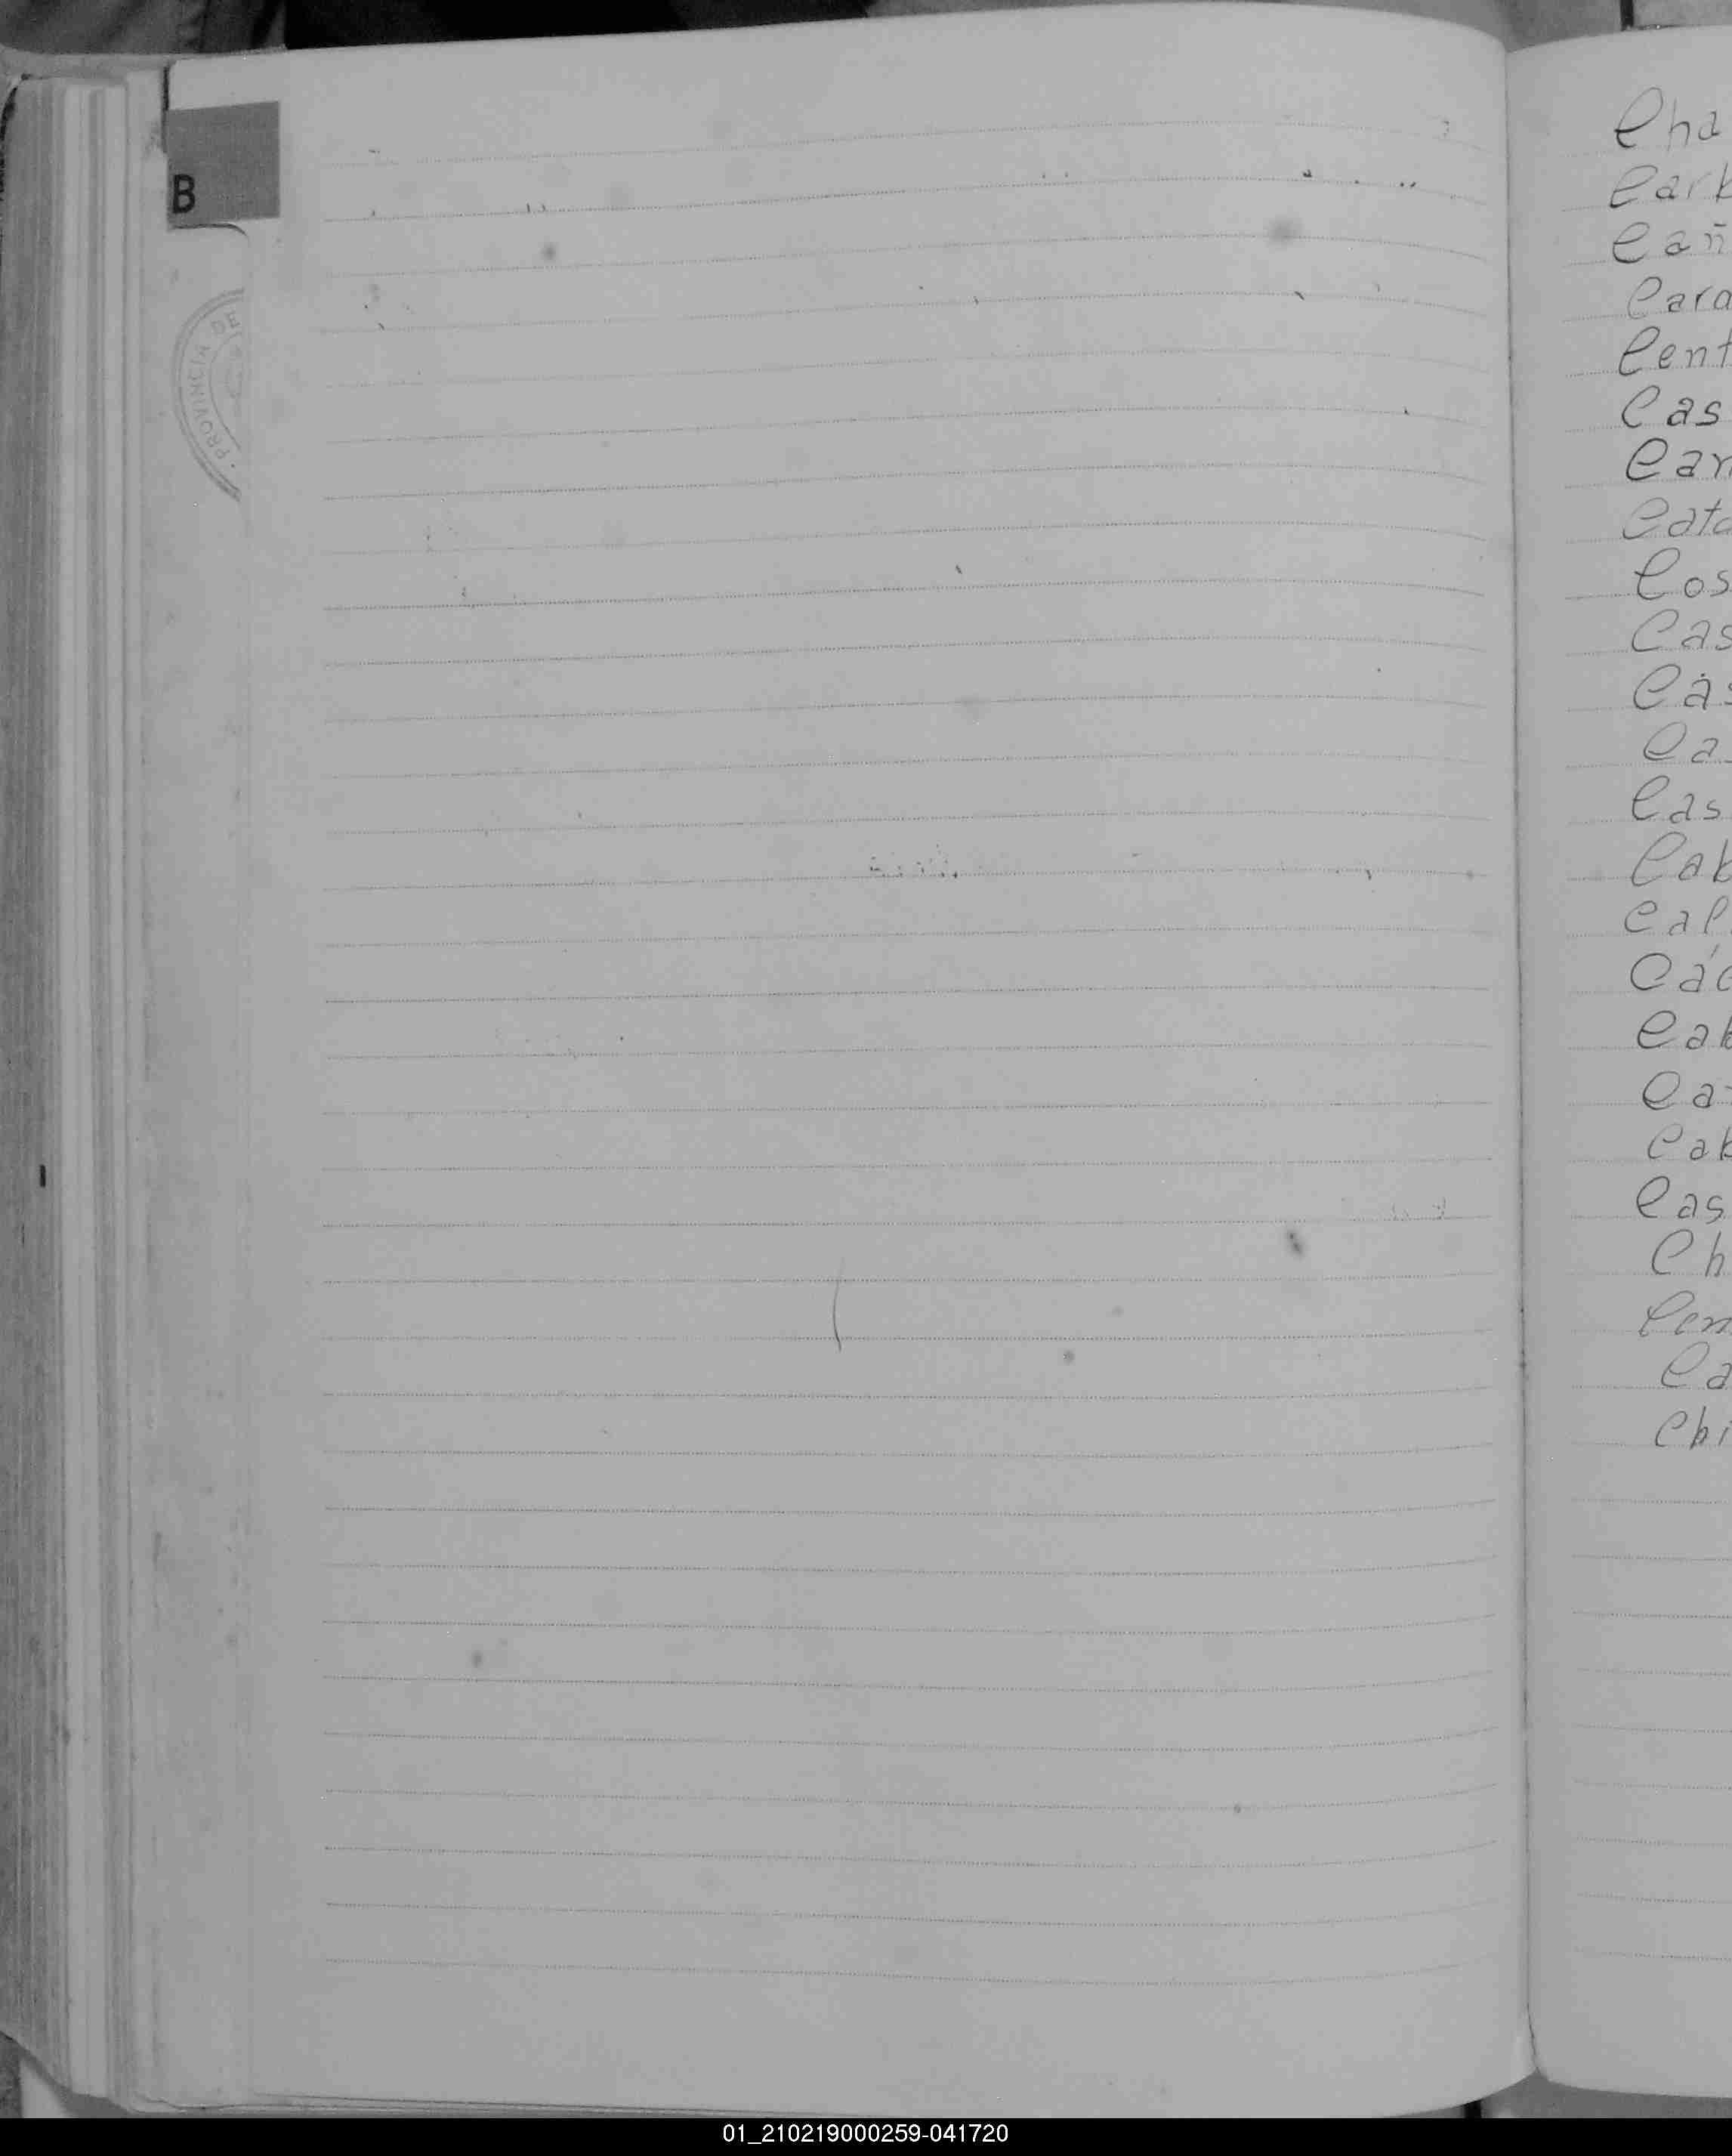 B
PROVINCIA DE
Cha
Carb
Cañ
Card
Cent
Cas
Can
Cata
Cos
Cas
Cas
Ca
Cas
Cab
Cal
Các
Cab
Ca
Cab
Cas
Ch
Cem
Ca
Chi
01_210219000259-041720